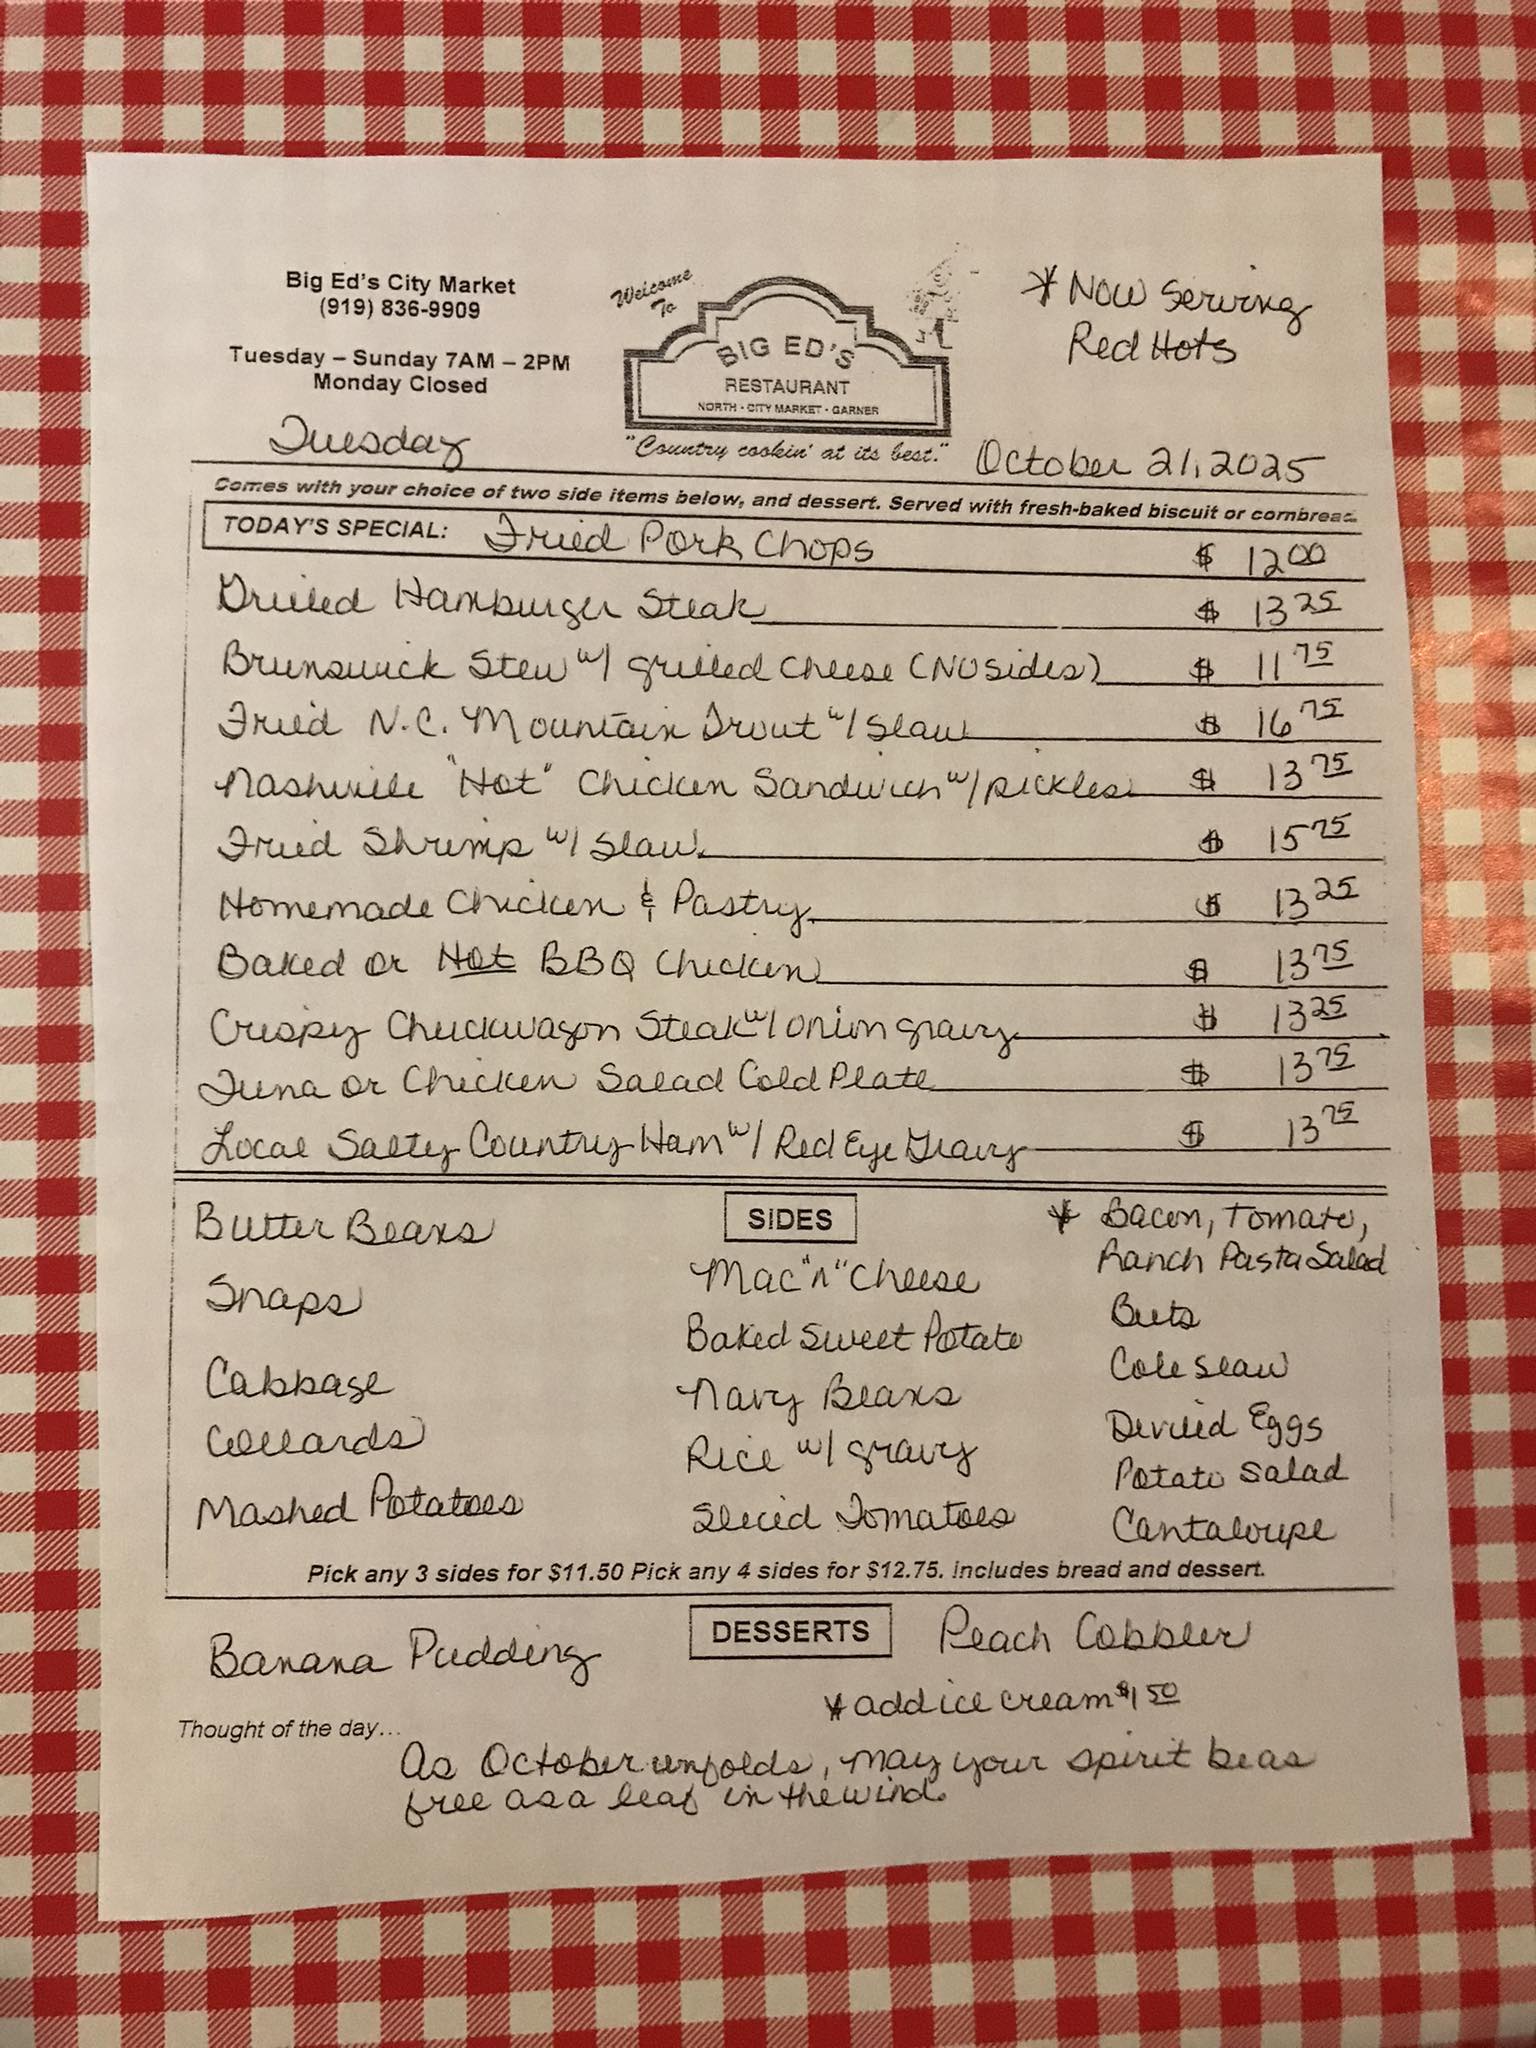 Big Ed's City Market
(919) 836-9909
Tuesday – Sunday 7AM – 2PM
Monday Closed
Welcome
To
BIG ED'S
RESTAURANT
NORTH · CITY MARKET · GARNER
"Country cookin' at its best."
* Now Serving
Red Hots
Tuesday
October 21, 2025
Comes with your choice of two side items below, and dessert. Served with fresh-baked biscuit or cornbread.
TODAY'S SPECIAL: Fried Pork Chops $ 12.00
Grilled Hamburger Steak $ 13.25
Brunswick Stew w/ grilled cheese (NO sides) $ 11.75
Fried N.C. Mountain Trout w/ Slaw $ 16.75
Nashville "Hot" Chicken Sandwich w/ pickles $ 13.75
Fried Shrimp w/ Slaw $ 15.75
Homemade Chicken & Pastry $ 13.25
Baked or Hot BBQ Chicken $ 13.75
Crispy Chuckwagon Steak w/ onion gravy $ 13.25
Tuna or Chicken Salad Cold Plate $ 13.75
Local Salty Country Ham w/ Red Eye Gravy $ 13.75
SIDES
Butter Beans
Snaps
Cabbage
Collards
Mashed Potatoes
Mac "n" Cheese
Baked Sweet Potato
Navy Beans
Rice w/ gravy
Sliced Tomatoes
* Bacon, Tomato,
Ranch Pasta Salad
Beets
Cole slaw
Deviled Eggs
Potato Salad
Cantaloupe
Pick any 3 sides for $11.50 Pick any 4 sides for $12.75. Includes bread and dessert.
DESSERTS
Banana Pudding
Peach Cobbler
* add ice cream $1.50
Thought of the day…
As October unfolds, may your spirit be as
free as a leaf in the wind.